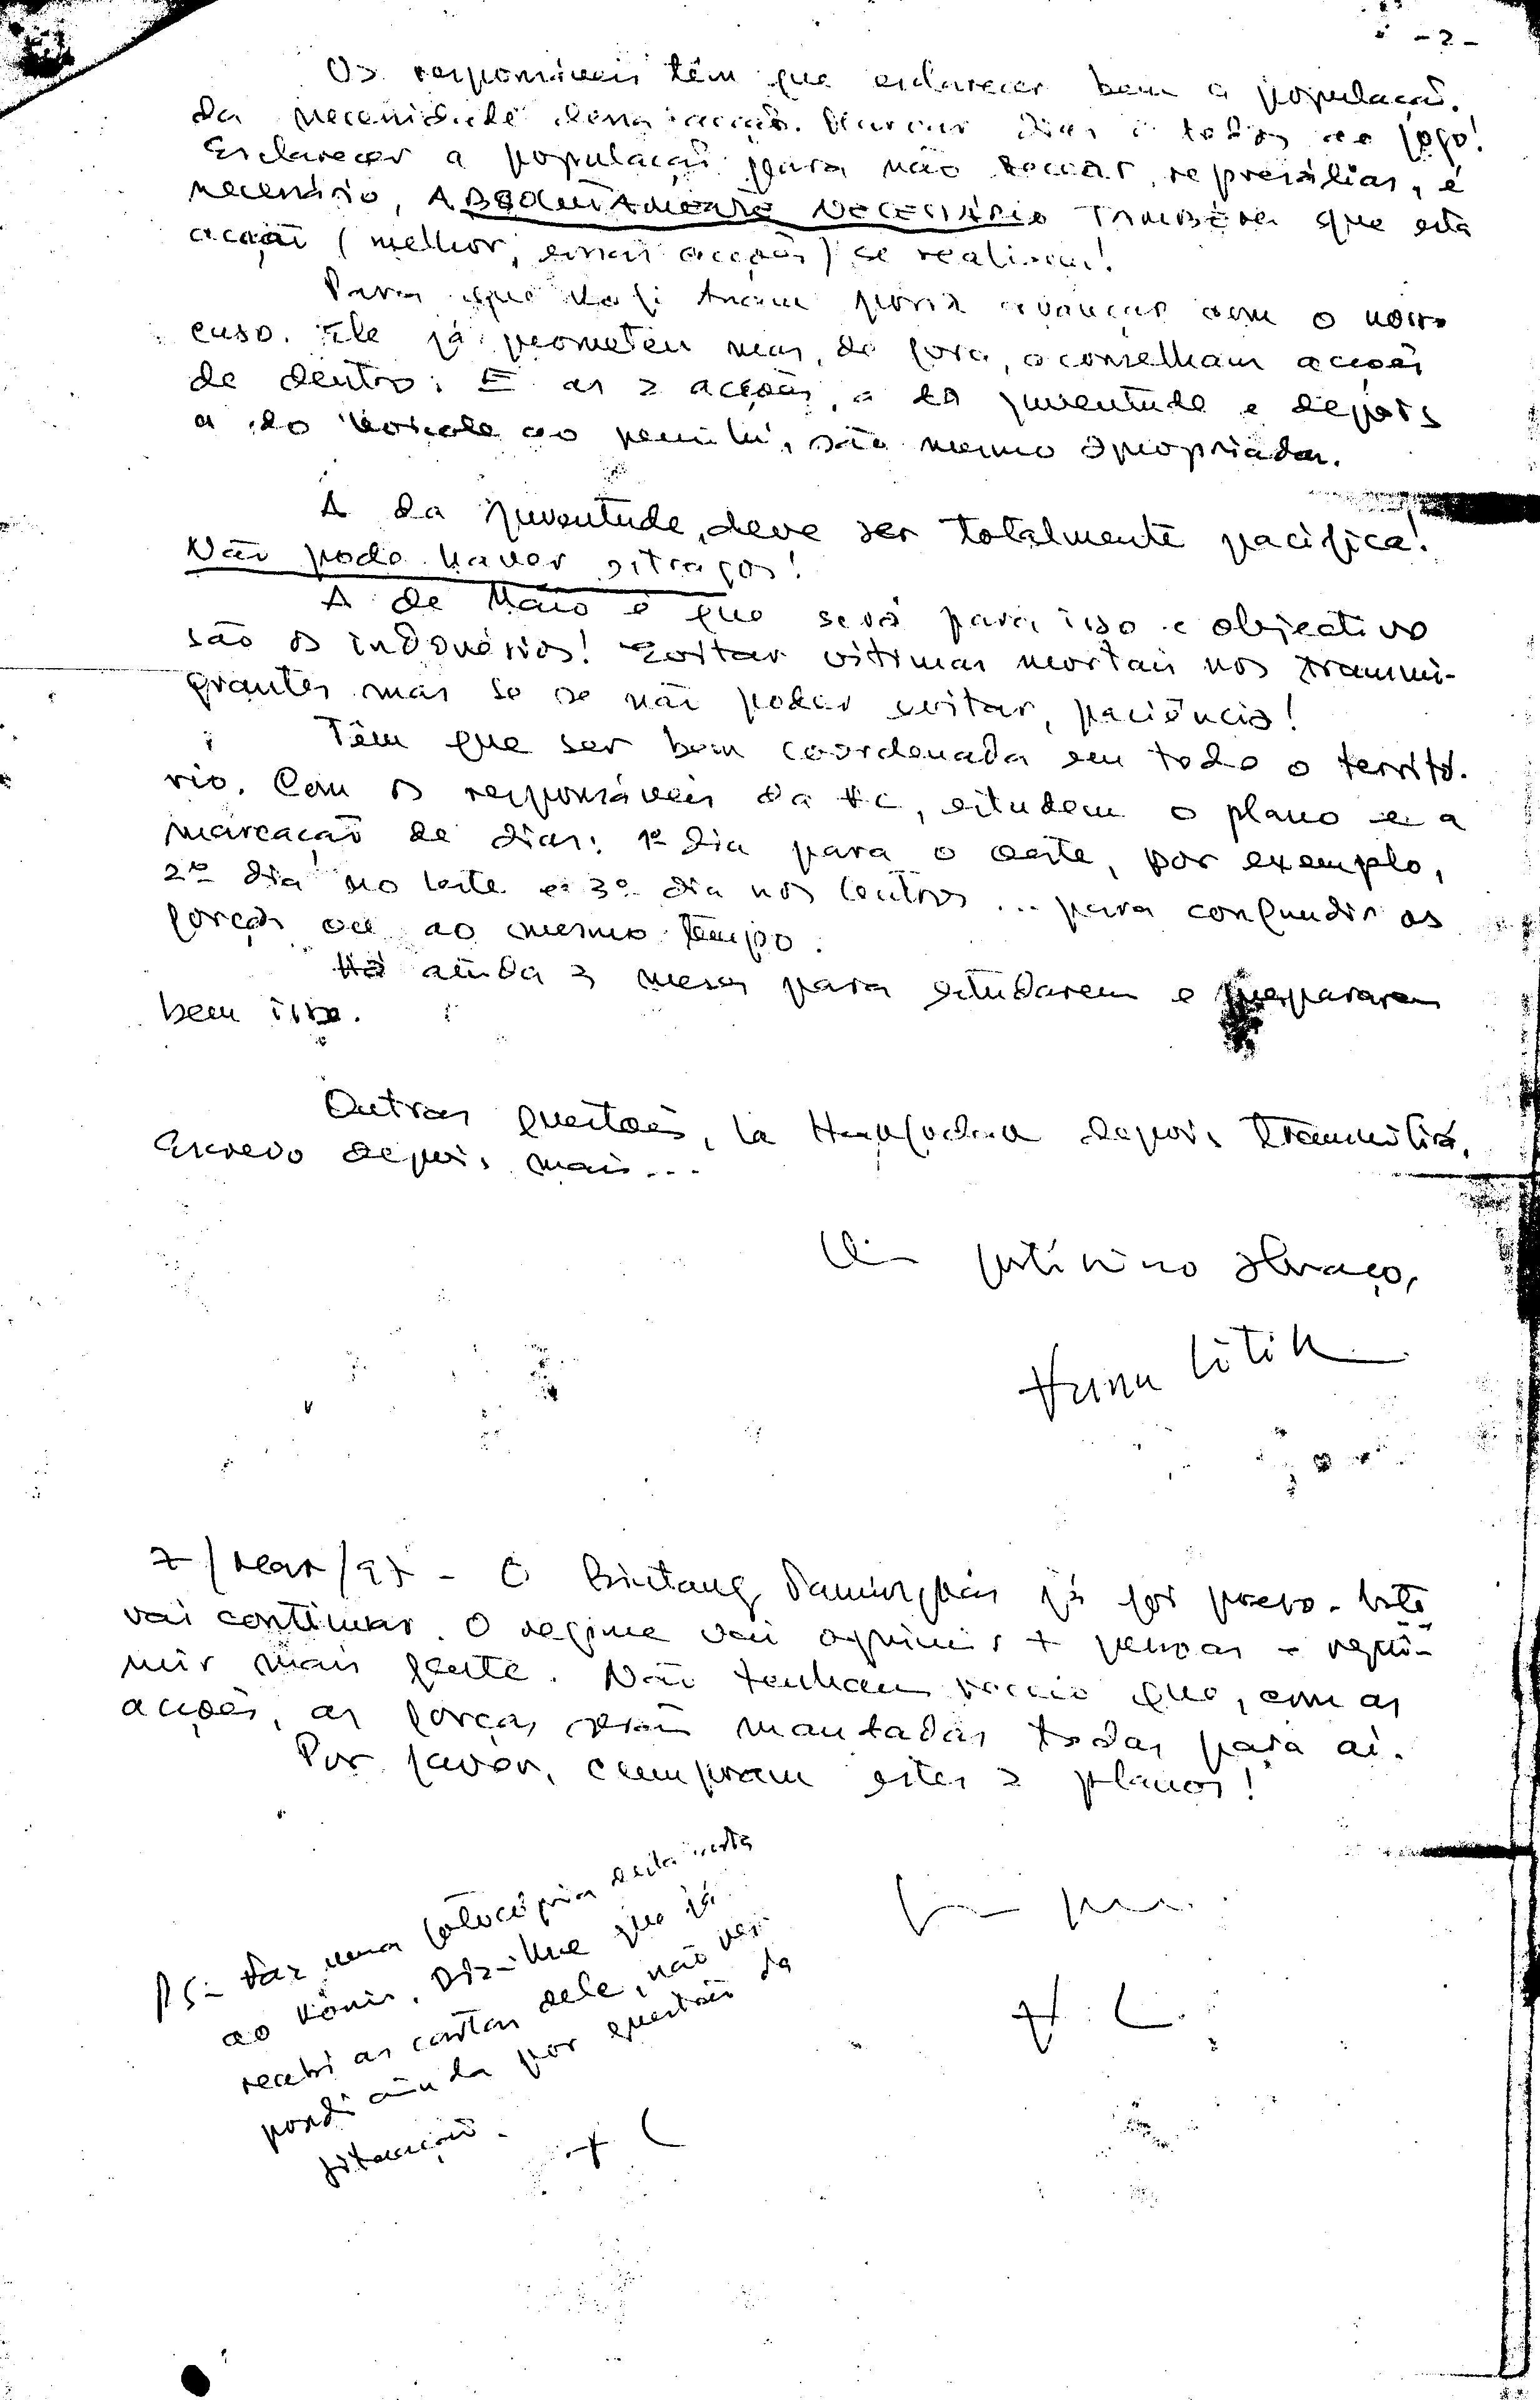 - 2 -
Os responsáveis têm que esclarecer bem a população.
da necessidade dessa acção. Marcar dias e todos ao fogo!
Esclarecer a população para não recear represálias, é
necessário, ABSOLUTAMENTE NECESSÁRIO TAMBÉM que esta
acção (melhor, essas acções) se realizem!
Para que Kofi Anam possa avançar com o nosso
caso. Ele já prometeu mas, de fora, aconselham acções
de dentro. E as 2 acções, a da juventude e depois
a do boicote ao pemilu, são mesmo apropriadas.
A da juventude, deve ser totalmente pacífica!
Não pode haver estragos!
A de Maio é que será para isso e objectivo
são os indonésios! Evitar vítimas mortais nos transmi-
grantes mas se se não poder evitar, paciência!
Têm que ser bem coordenada em todo o territó-
rio. Com os responsáveis da FC, estudem o plano e a
marcação de dias: 1º dia para o oeste, por exemplo,
2º dia no leste e 3º dia nos centros... para confundir as
forças ou ao mesmo tempo.
Há ainda 2 meses para estudarem e prepararem
bem isso.
Outras questões, la depois transmitirá.
Escrevo depois mais...
Um fortíssimo abraço,
Hunu Litik
7/Mar/97 - O Bintang Pamungkas já foi preso. Isto
vai continuar. O regime vai oprimir + pessoas e repri-
mir mais gente. Não tenham receio que, com as
acções, as forças serão mandadas todas para aí.
Por favor, cumpram estes 2 planos!
PS - Faz uma fotocópia desta carta
ao Konis. Diz-lhe que já
recebi as cartas dele, não res-
pondi ainda por questões da
situação.
H. L.
H L